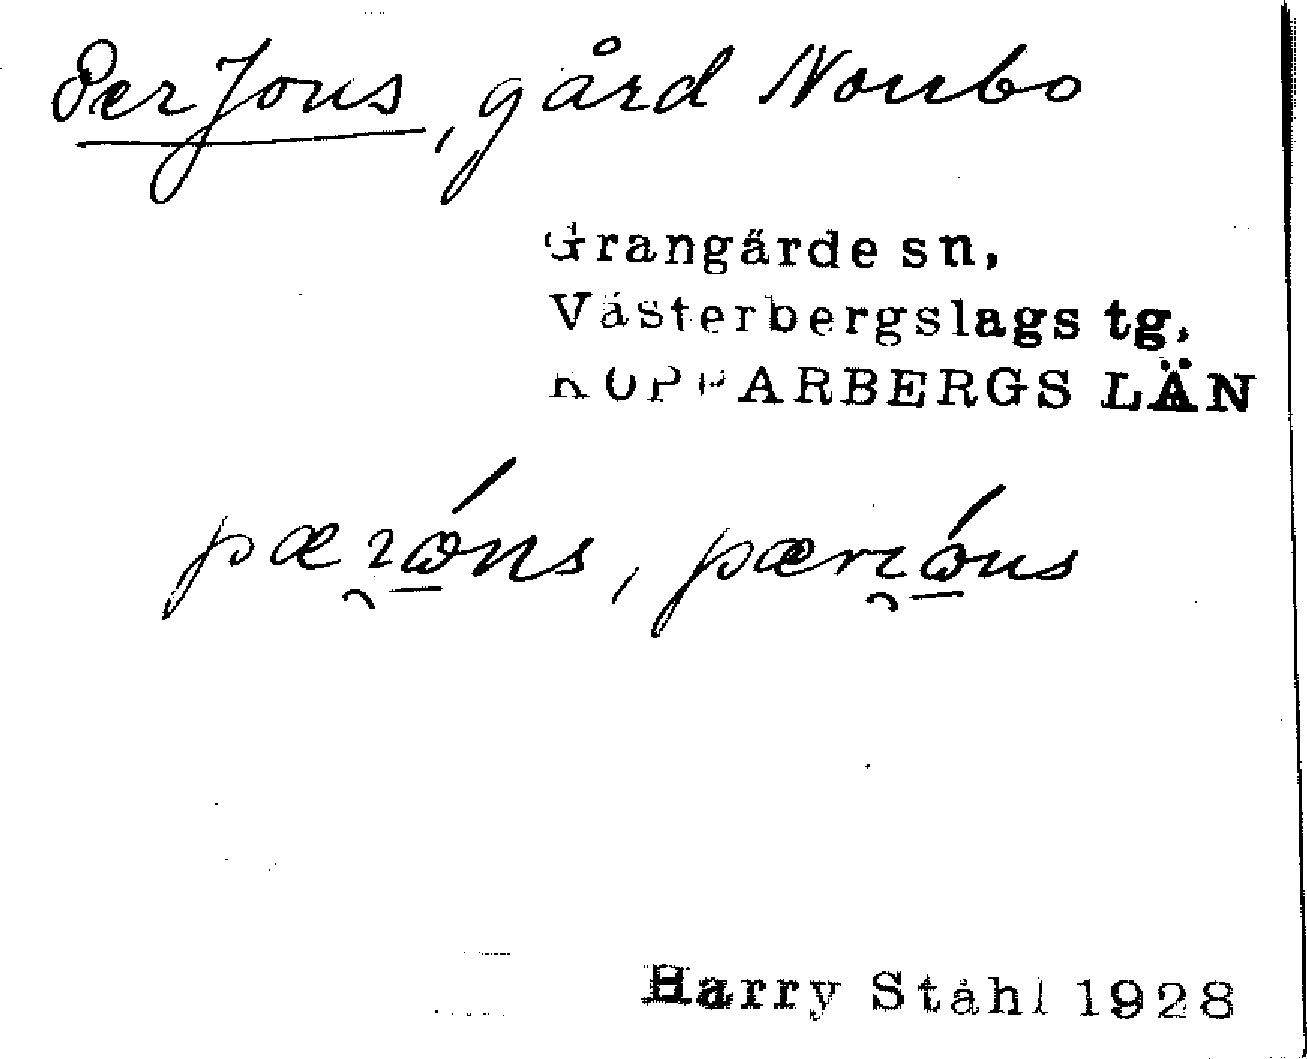 PerJons, gård Norrbo
Grangärde sn,
Västerbergslags tg,
KOPPARBERGS LÄN
Harry Ståhl 1928